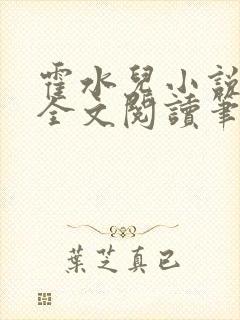 霍水兒小說
全文閱讀筆
葉芝真已